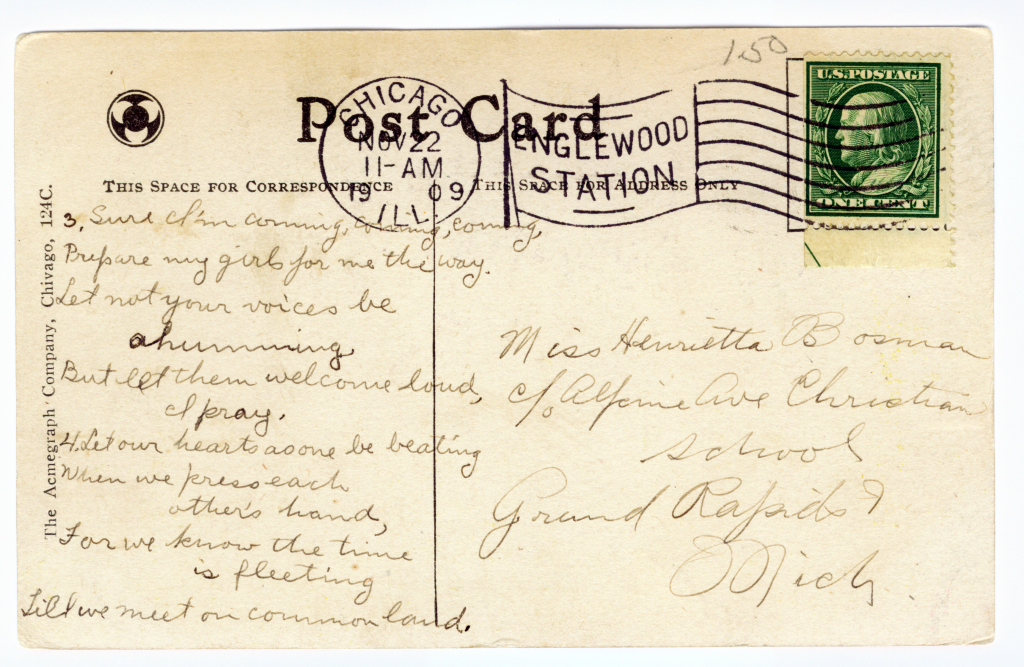 150
Post Card
CHICAGO
NOV 22
11-AM
1909
ILL.
ENGLEWOOD
STATION
U.S. POSTAGE
ONE CENT
THIS SPACE FOR CORRESPONDENCE
THIS SPACE FOR ADDRESS ONLY
The Acmegraph Company, Chivago, 124C.
3. Sure I'm coming, coming, coming,
Prepare my girls for me the way.
Let not your voices be
ahumming,
But let them welcome loud,
I pray.
4. Let our hearts as one be beating
When we press each
other's hand,
For we know the time
is fleeting
Till we meet on common land.
Miss Henrietta Bosman
c/o Alpine Ave Christian
School
Grand Rapids
Mich.